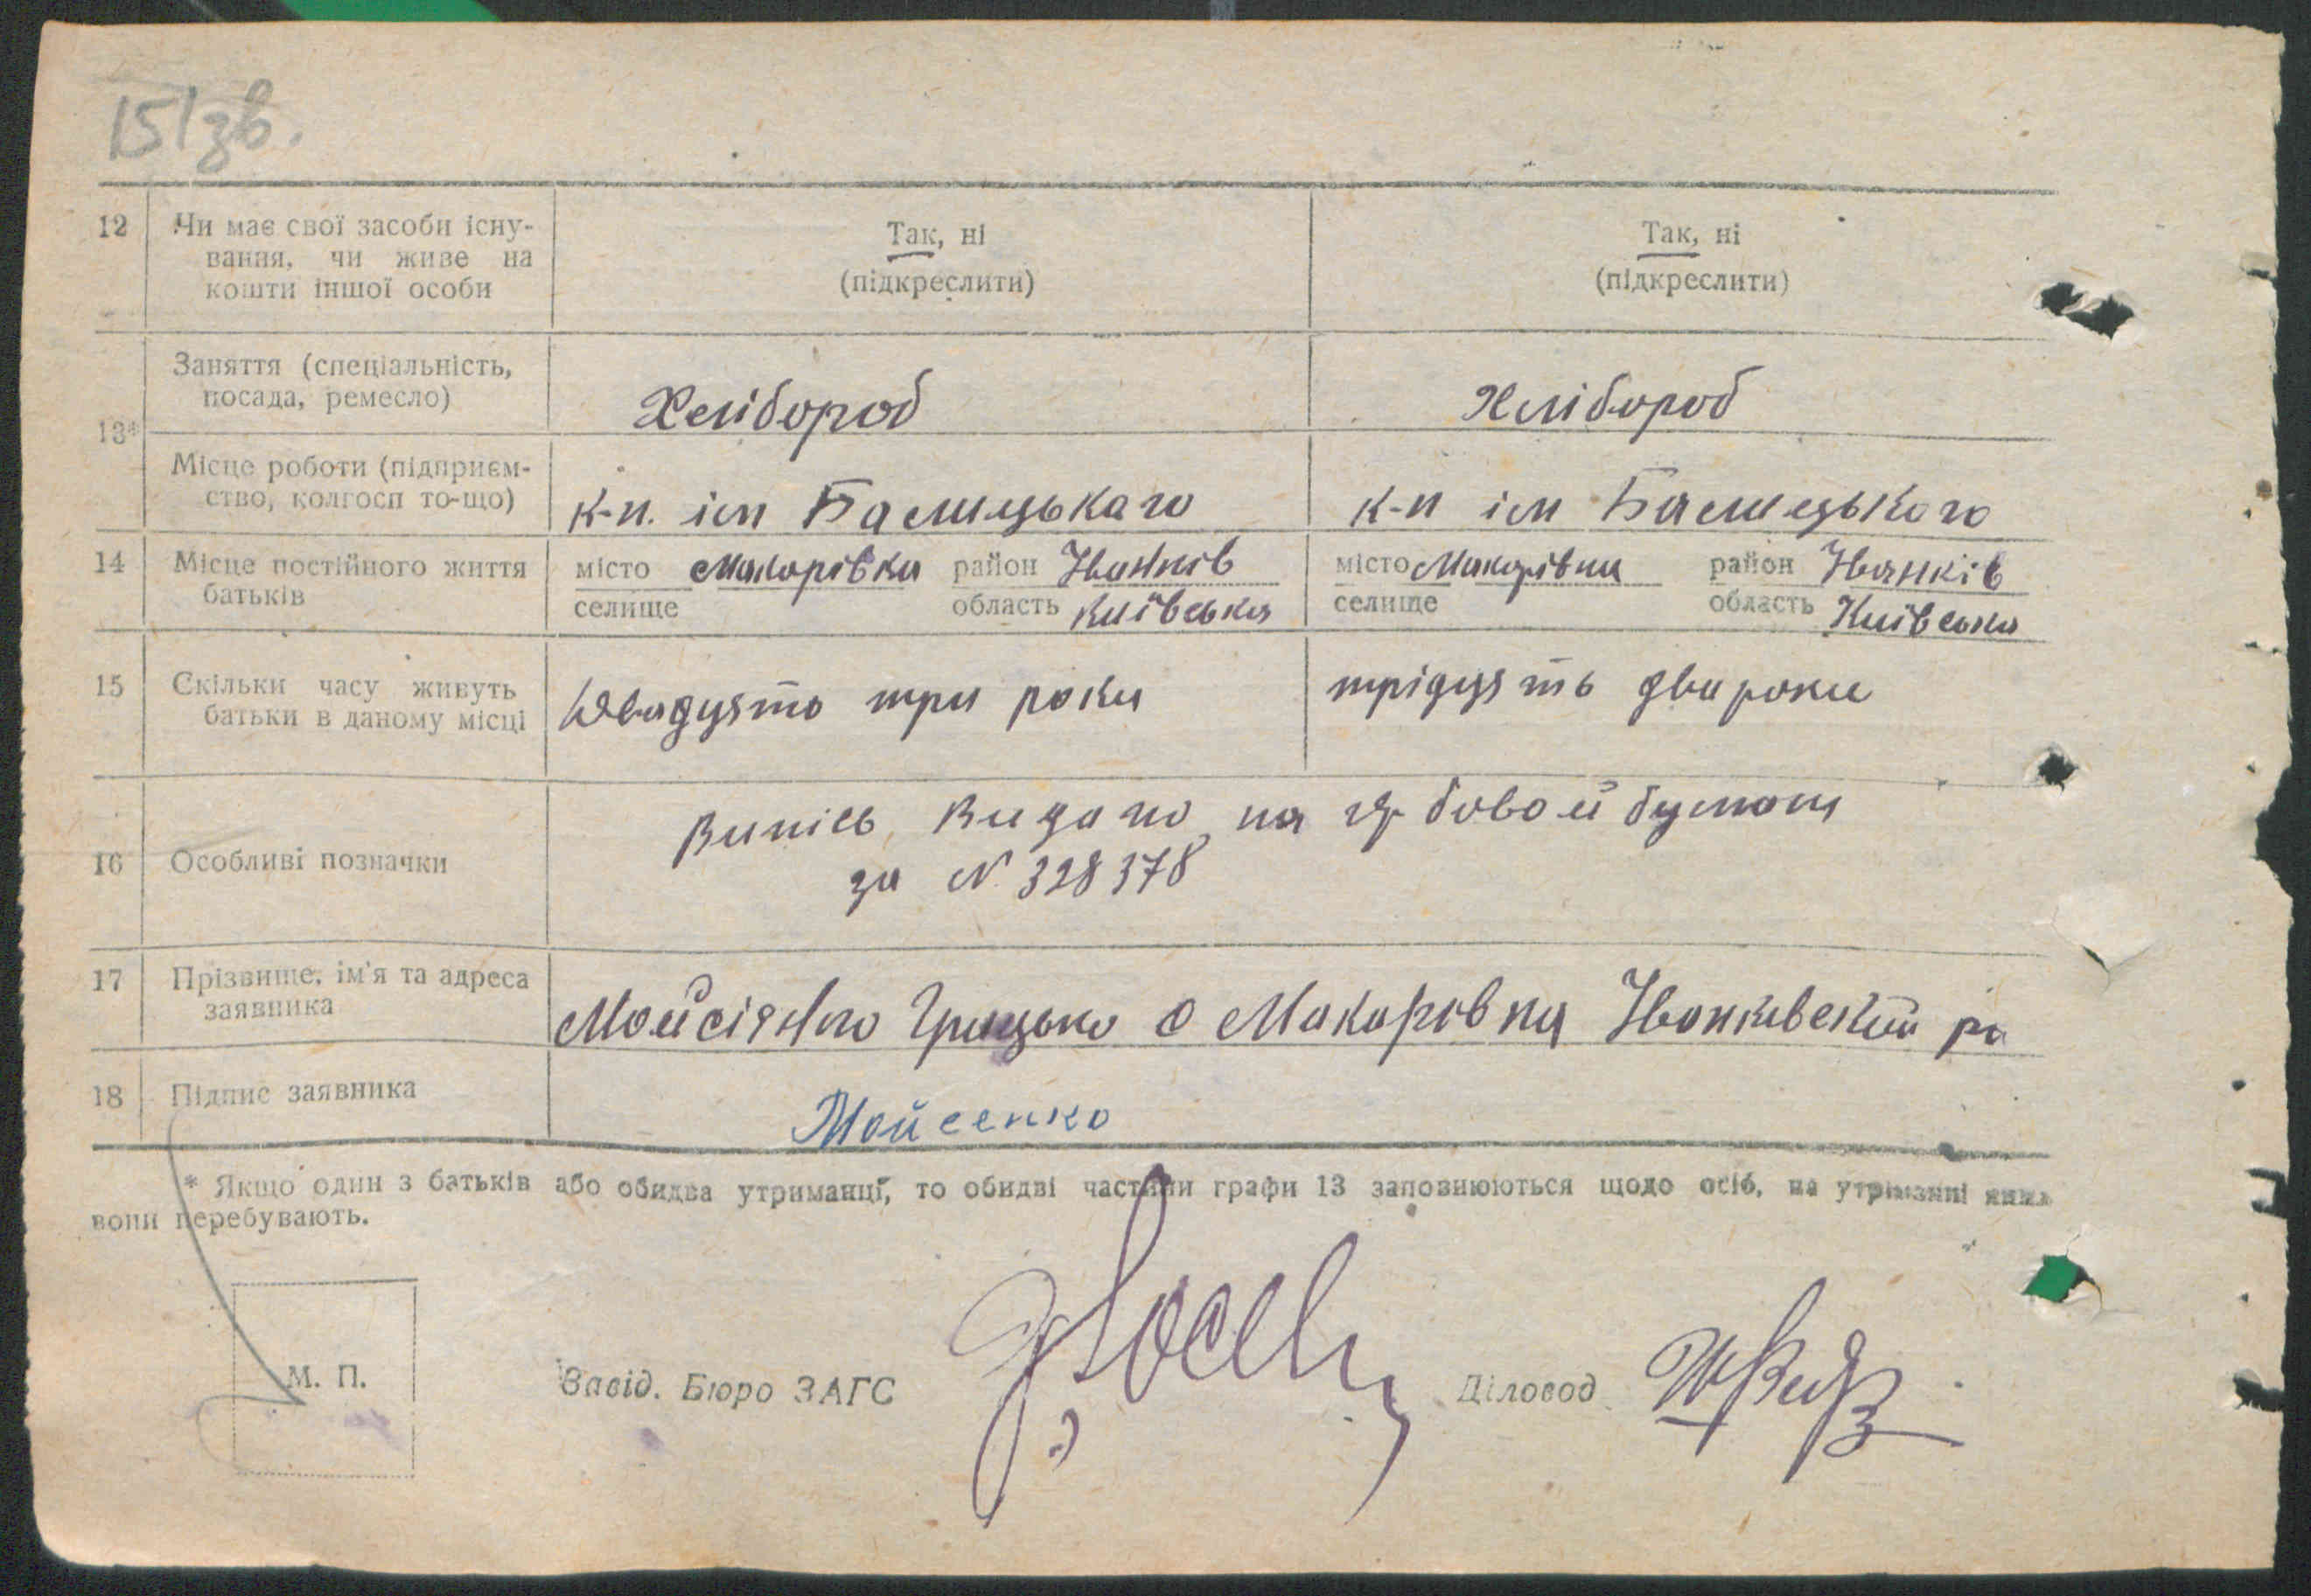 151зв.
12 Чи має свої засоби існу-
вання, чи живе на
кошти іншої особи
Так, ні
(підкреслити)
Так, ні
(підкреслити)
13*
Заняття (спеціальність,
посада, ремесло)
Хлібороб
Хлібороб
Місце роботи (підприєм-
ство, колгосп то-що)
к-п. ім
к-п ім
14 Місце постійного життя
батьків
місто Макарівка район Іванків
селище область Київська
місто Макарівка район Іванків
селище область Київська
15 Скільки часу живуть
батьки в даному місці
двадцять три роки
трідцять два роки
16 Особливі позначки
Випісь видано на гербовой бумаги
за N 328378
17 Прізвище, ім'я та адреса
заявника
Мойсієнко Грицько с Макарівка Іванківский ра
18 Підпис заявника
Мойсенко
* Якщо один з батьків або обидва утриманці, то обидві частини графи 13 заповнюються щодо осіб, на утриманні яких
вони перебувають.
М. П.
Завід. Бюро ЗАГС
Діловод